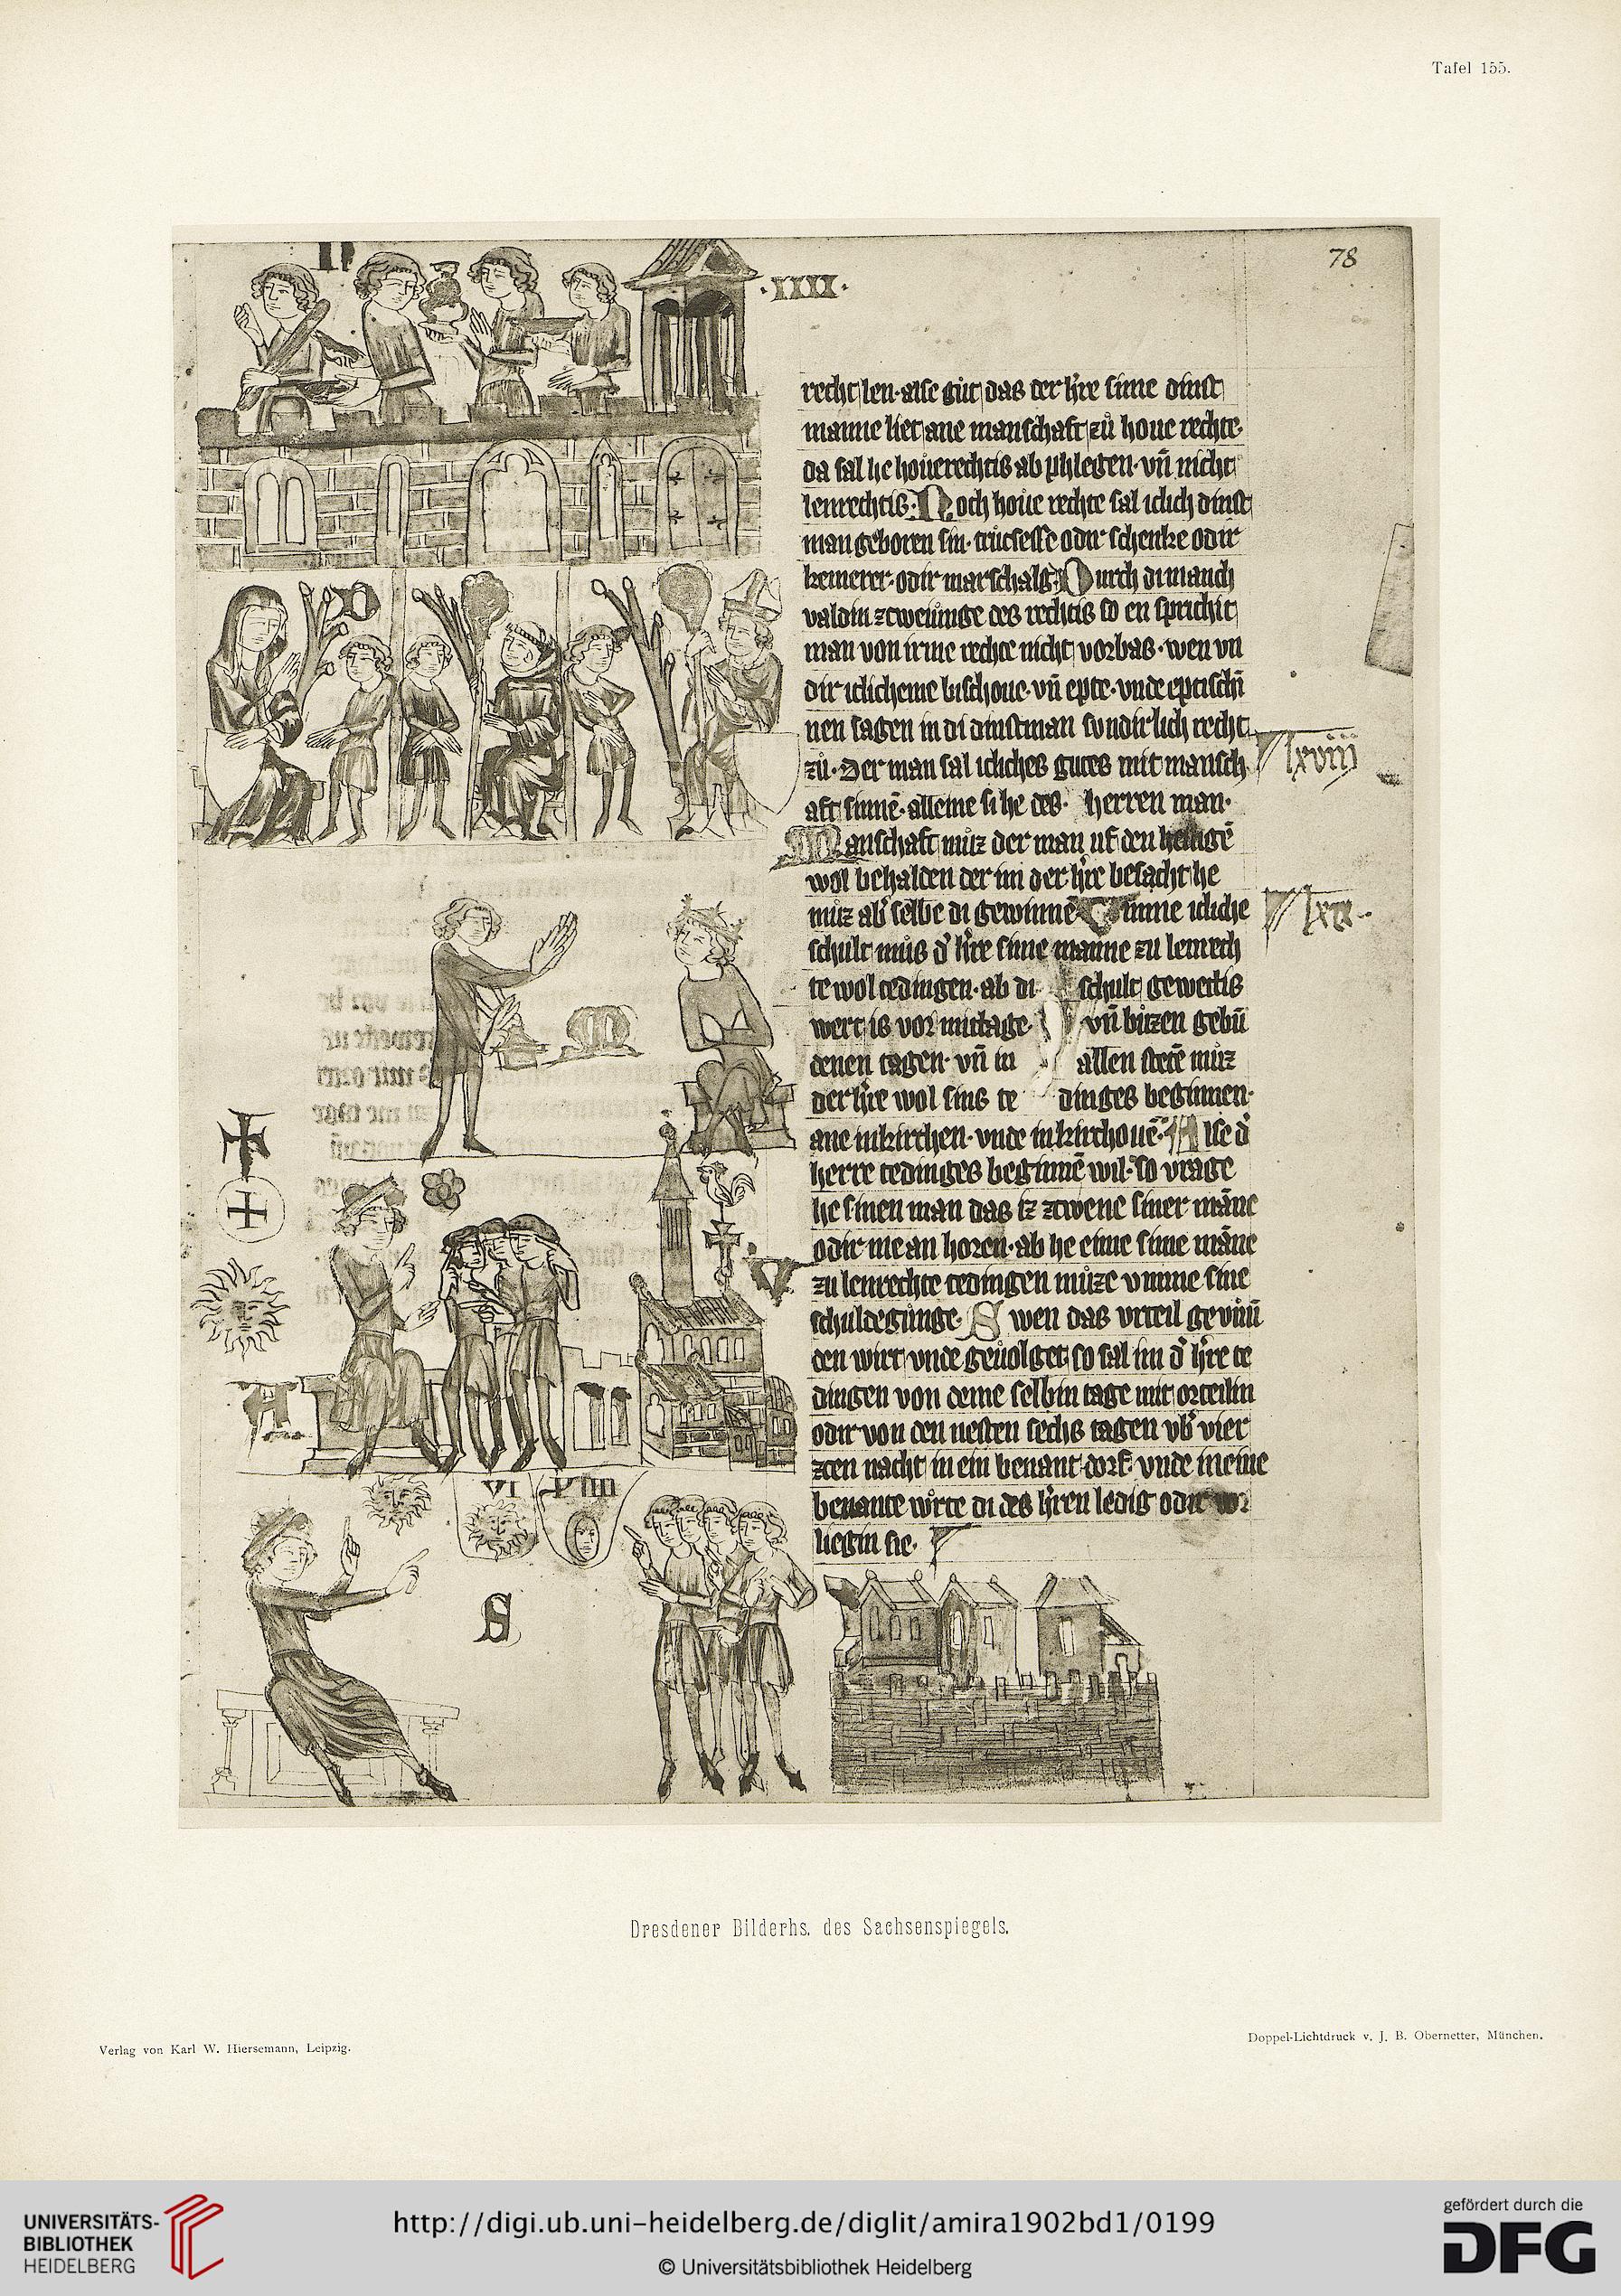 Tafel 155.
78
·IIII·
recht len· alse gut das der h're sime dinst
manne liet ane manschaft zů houe rechte·
da sal he houerechtis ab phlegen· vn̄ nicht
lenrechtis· Noch houe rechte sal iclich dinst
man geboren sin· trucsesse odir schenke odir
kemerer· odir marschalg· Durch di manch
valdin zcweiunge des rechtis so en sprichit
man von irme rechte nicht vorbas· wen vn
dir iclicheme bischoue· vn̄ epte· vnde eptischī
nen sagen in di dinstman sundirlich recht
zů· Der man sal icliches gutes mit mansch
lxviij
aft sinnē· alleine si he des herren man·
Manschaft můz der man uf den heiligē
wol behalden der im der h're besacht he
můz ab' selbe di gewinnē Umme icliche
lxix·
schult můs d' h're sime manne zu lenrech
te wol tedingen· ab di schult gewettis
wert is vor mittage· vn̄ bůzen gebū
denen tagen· vn̄ in allen stetē můz
der h're wol sins te dinges beginnen·
ane in kirchen· vnde in kirchouē· Alse d'
herre tedinges beginnē wil· so vrage
he sinen man das iz zcwene siner māne
odir me an horen· ab he eime sime māne
V
zu lenrechte tedingen můze vmme sine
schuldegunge· Swen das vrteil gevūū
den wirt vnde geuolget so sal im d' h're te
dingen von deme selbin tage mit orteilin
A
odir von den nesten sechs tagen vb' vier
zcen nacht in ein benant dorf· vnde in eine
VI
benante wůrte di des h'ren ledig odir vor
ligin sie·
S
Dresdener Bilderhs. des Sachsenspiegels.
Verlag von Karl W. Hiersemann, Leipzig.
Doppel-Lichtdruck v. J. B. Obernetter, München.
UNIVERSITÄTS-
BIBLIOTHEK
HEIDELBERG
http://digi.ub.uni-heidelberg.de/diglit/amira1902bd1/0199
© Universitätsbibliothek Heidelberg
gefördert durch die
DFG